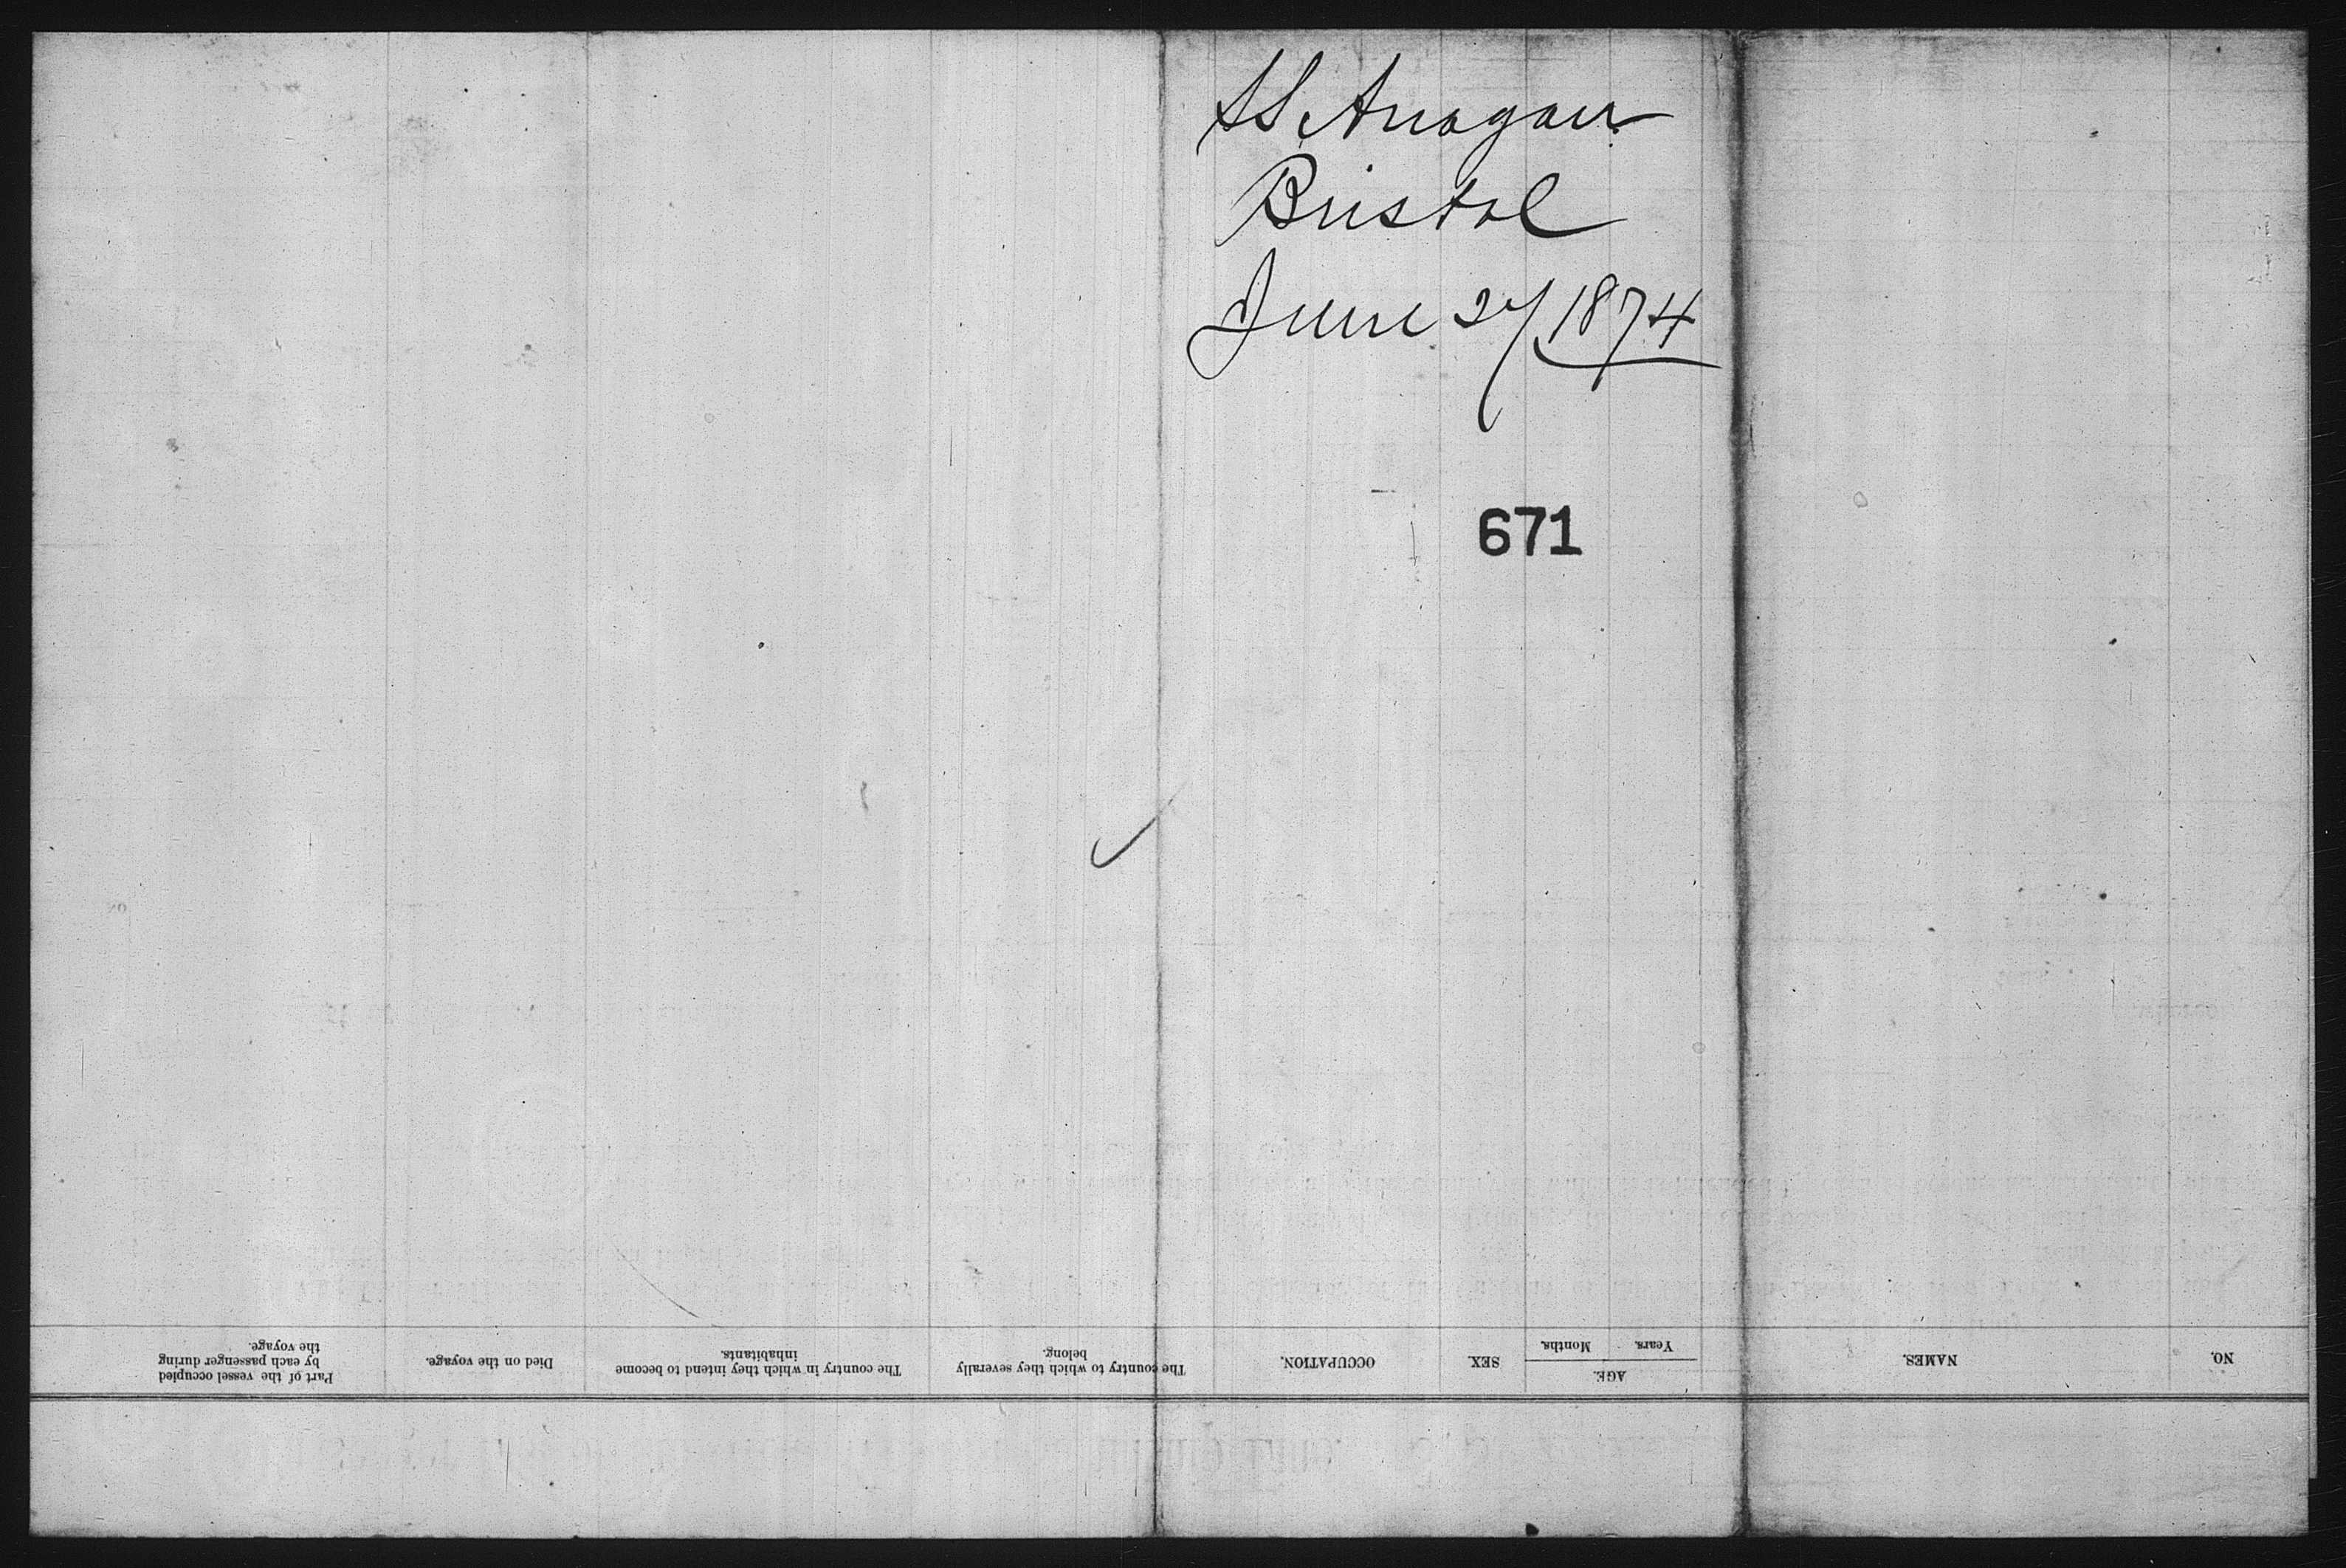 SS Arragon
Bristol
June 27/1874
671
NO.
NAMES.
AGE.
Years.
Months.
SEX.
OCCUPATION.
The country to which they severally
belong.
The country in which they intend to become
inhabitants.
Died on the voyage.
Part of the vessel occupied
by each passenger during
the voyage.